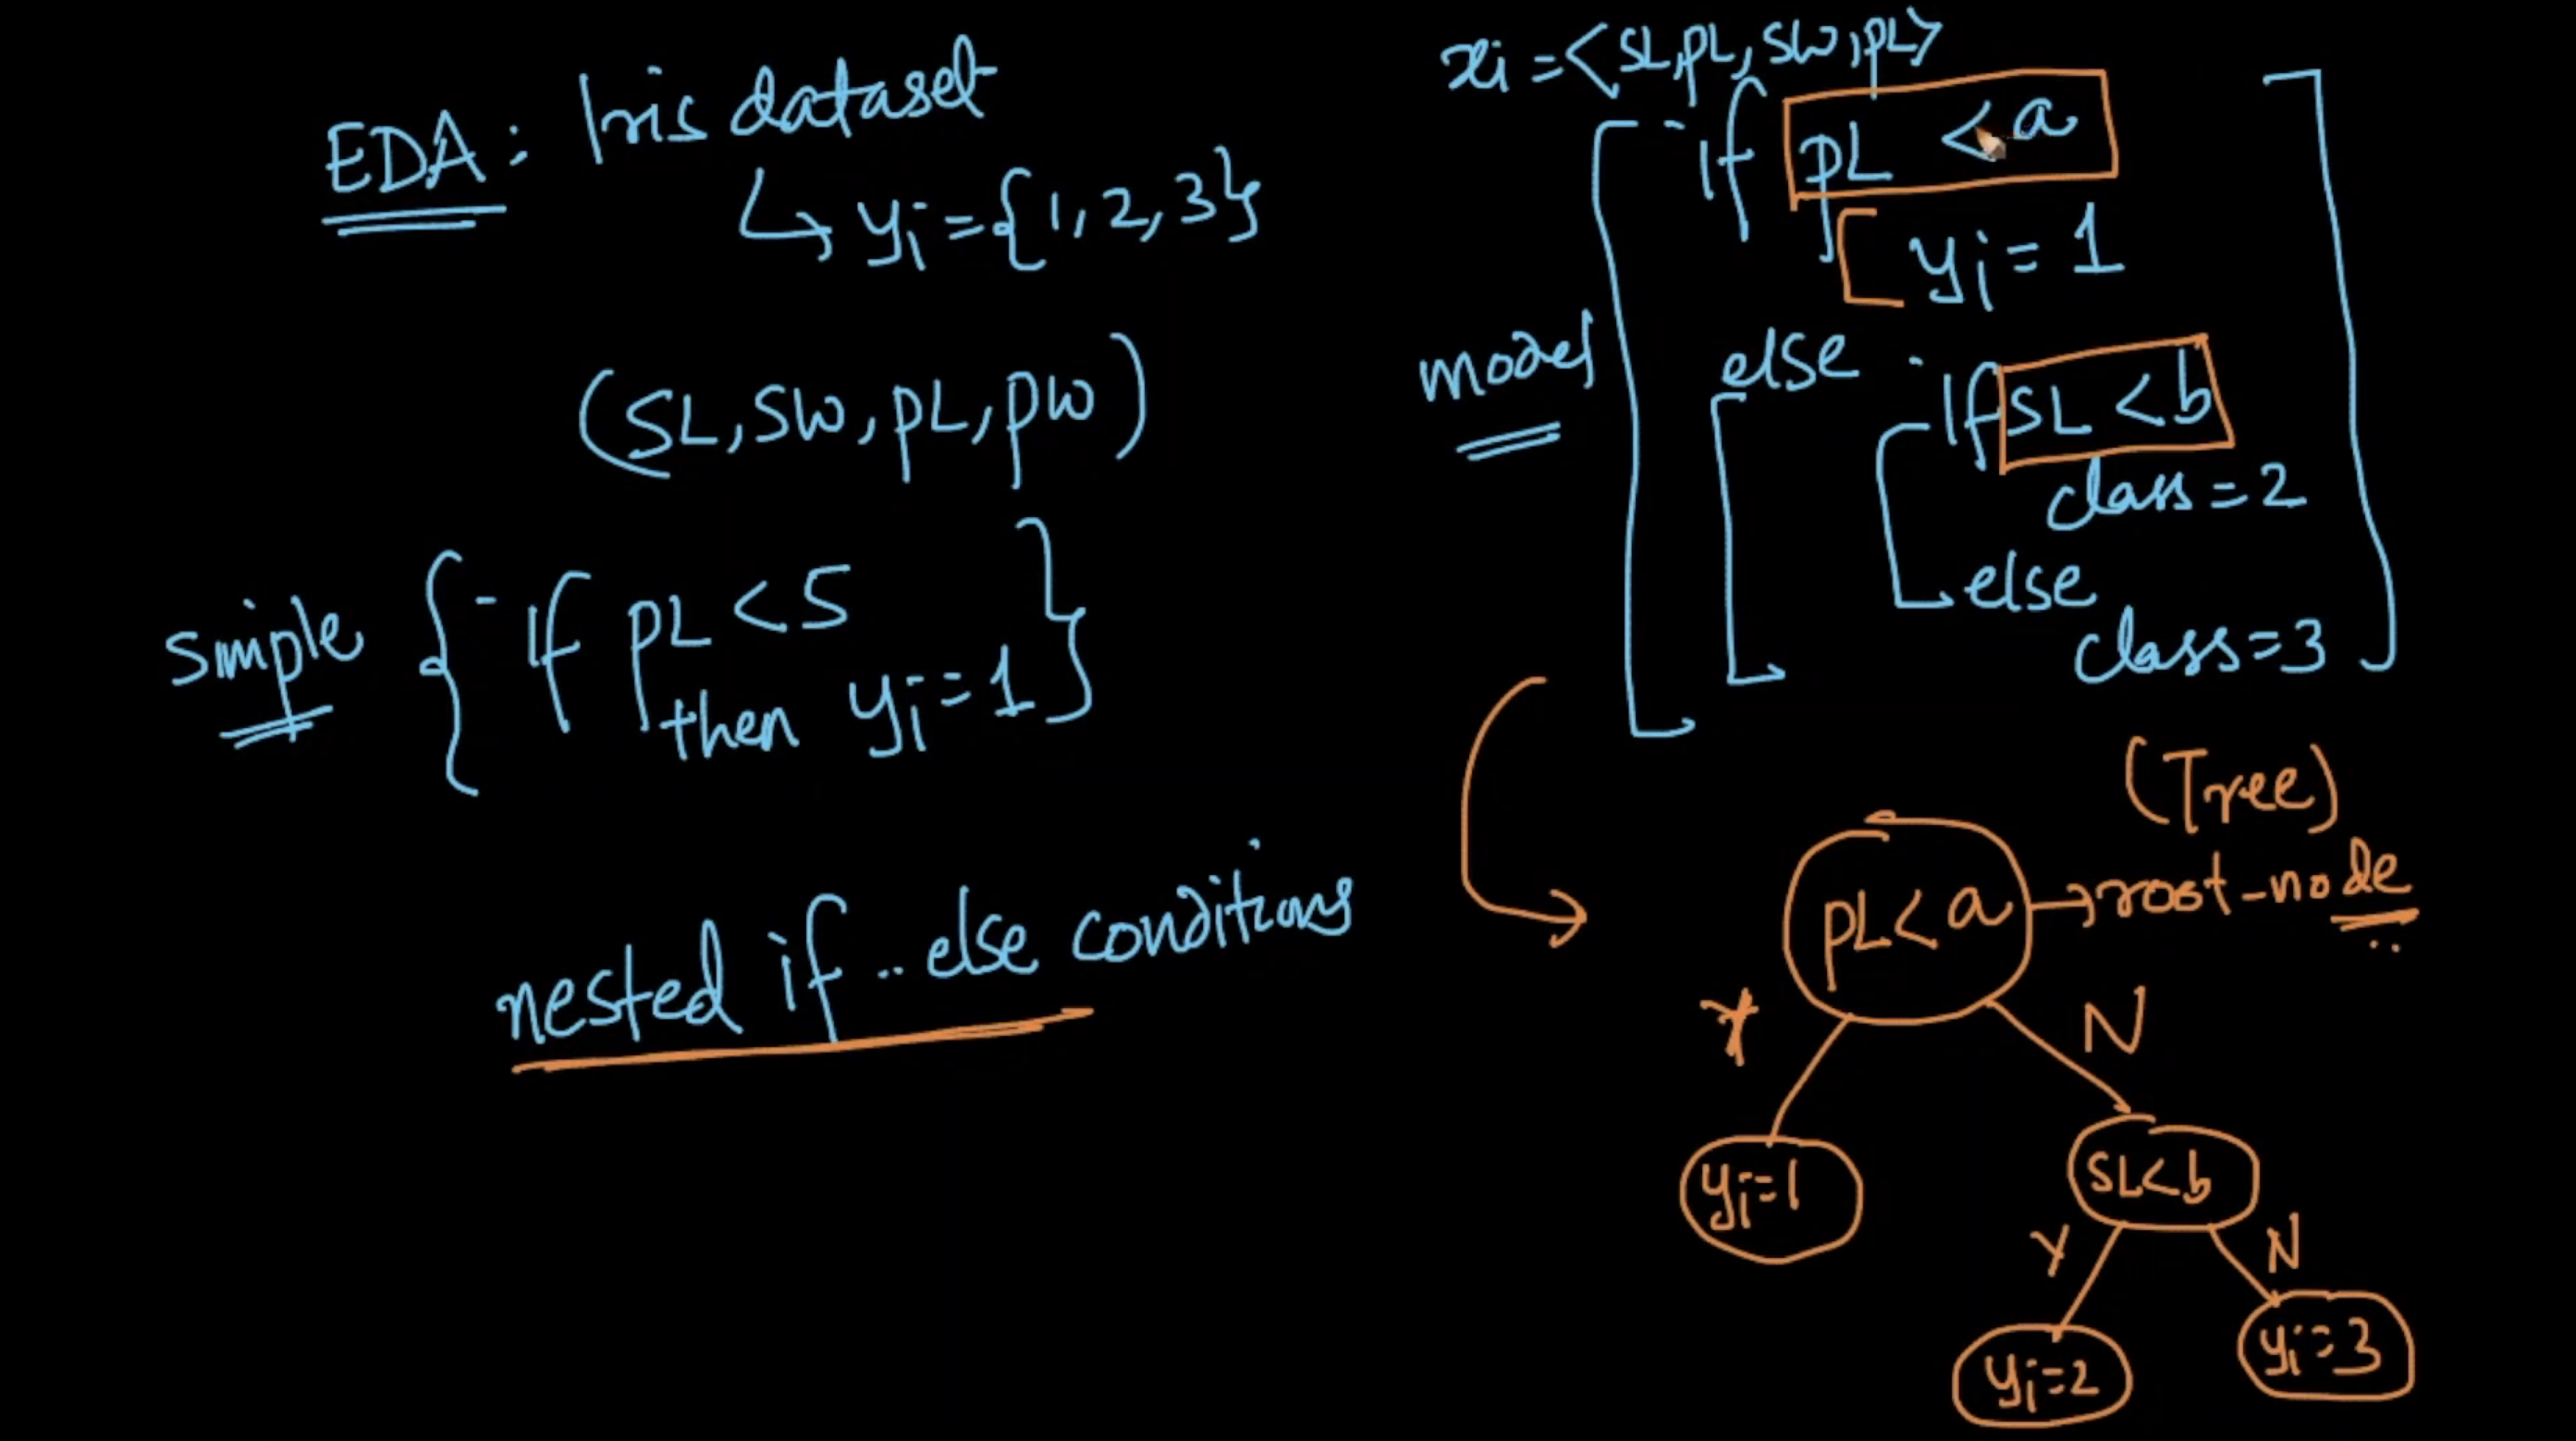 EDA: Iris dataset
↳ yi = {1, 2, 3}
(SL, SW, PL, PW)
simple { if PL < 5
then yi = 1 }
nested if .. else conditions
xi = <SL, PL, SW, PL>
model
if PL < a
yi = 1
else if SL < b
class = 2
else
class = 3
(Tree)
PL < a → root-node
Y N
yi = 1
SL < b
Y N
yi = 2
yi = 3